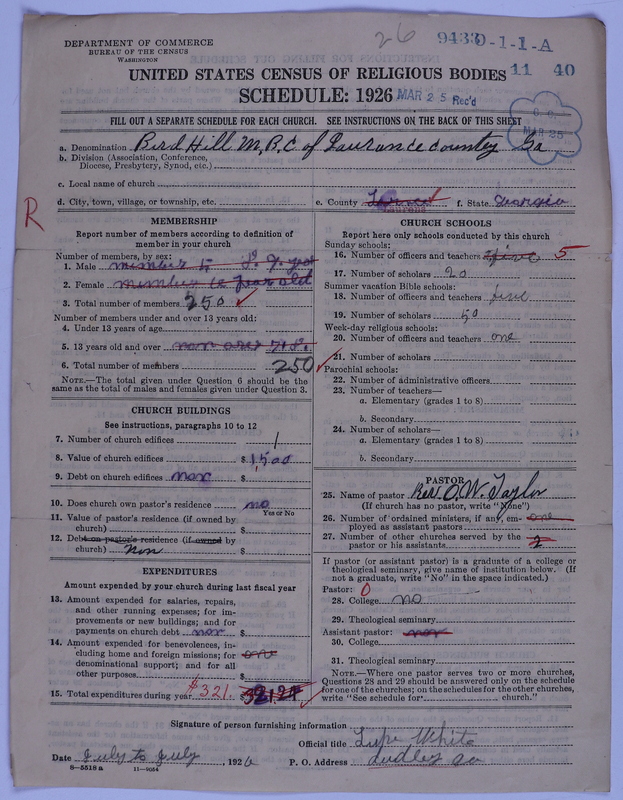 26 9433 0-1-1-A
DEPARTMENT OF COMMERCE
BUREAU OF THE CENSUS
WASHINGTON
11 40
UNITED STATES CENSUS OF RELIGIOUS BODIES
SCHEDULE: 1926 MAR 25 Rec'd
MAR 25
FILL OUT A SEPARATE SCHEDULE FOR EACH CHURCH. SEE INSTRUCTIONS ON THE BACK OF THIS SHEET
a. Denomination Bird Hill M, B, C of Laurance county Ga
b. Division (Association, Conference,
Diocese, Presbytery, Synod, etc.)
c. Local name of church
d. City, town, village, or township, etc. e. County Laurens f. State Georgia
R
MEMBERSHIP
Report number of members according to definition of
member in your church
Number of members, by sex:
1. Male member 5
2. Female member 12 year old
3. Total number of members 250 ✓
Number of members under and over 13 years old:
4. Under 13 years of age
5. 13 years old and over
6. Total number of members 250 ✓
NOTE.—The total given under Question 6 should be the
same as the total of males and females given under Question 3.
CHURCH BUILDINGS
See instructions, paragraphs 10 to 12
7. Number of church edifices 1
8. Value of church edifices $ 1,500
9. Debt on church edifices non $
10. Does church own pastor's residence no
Yes or No
11. Value of pastor's residence (if owned by
church) $
12. Debt on pastor's residence (if owned by
church) non $
EXPENDITURES
Amount expended by your church during last fiscal year
13. Amount expended for salaries, repairs,
and other running expenses; for im-
provements or new buildings; and for
payments on church debt non $
14. Amount expended for benevolences, in-
cluding home and foreign missions; for one
denominational support; and for all
other purposes $
15. Total expenditures during year $321.
CHURCH SCHOOLS
Report here only schools conducted by this church
Sunday schools:
16. Number of officers and teachers five 5
17. Number of scholars 20
Summer vacation Bible schools:
18. Number of officers and teachers five
19. Number of scholars 50
Week-day religious schools:
20. Number of officers and teachers one
21. Number of scholars
Parochial schools:
22. Number of administrative officers
23. Number of teachers—
a. Elementary (grades 1 to 8)
b. Secondary
24. Number of scholars—
a. Elementary (grades 1 to 8)
b. Secondary
PASTOR
25. Name of pastor Rev. O. W. Taylor
(If church has no pastor, write "None")
26. Number of ordained ministers, if any, em-
ployed as assistant pastors one
27. Number of other churches served by the
pastor or his assistants 2
If pastor (or assistant pastor) is a graduate of a college or
theological seminary, give name of institution below. (If
not a graduate, write "No" in the space indicated.)
Pastor: 0
28. College no
29. Theological seminary
Assistant pastor: non
30. College
31. Theological seminary
NOTE.—Where one pastor serves two or more churches,
Questions 28 and 29 should be answered only on the schedule
for one of the churches; on the schedules for the other churches,
write "See schedule for church."
Signature of person furnishing information
Official title Lupe White
Date July to July, 1926 P. O. Address Dudley Ga
8—5518 a 11—9054